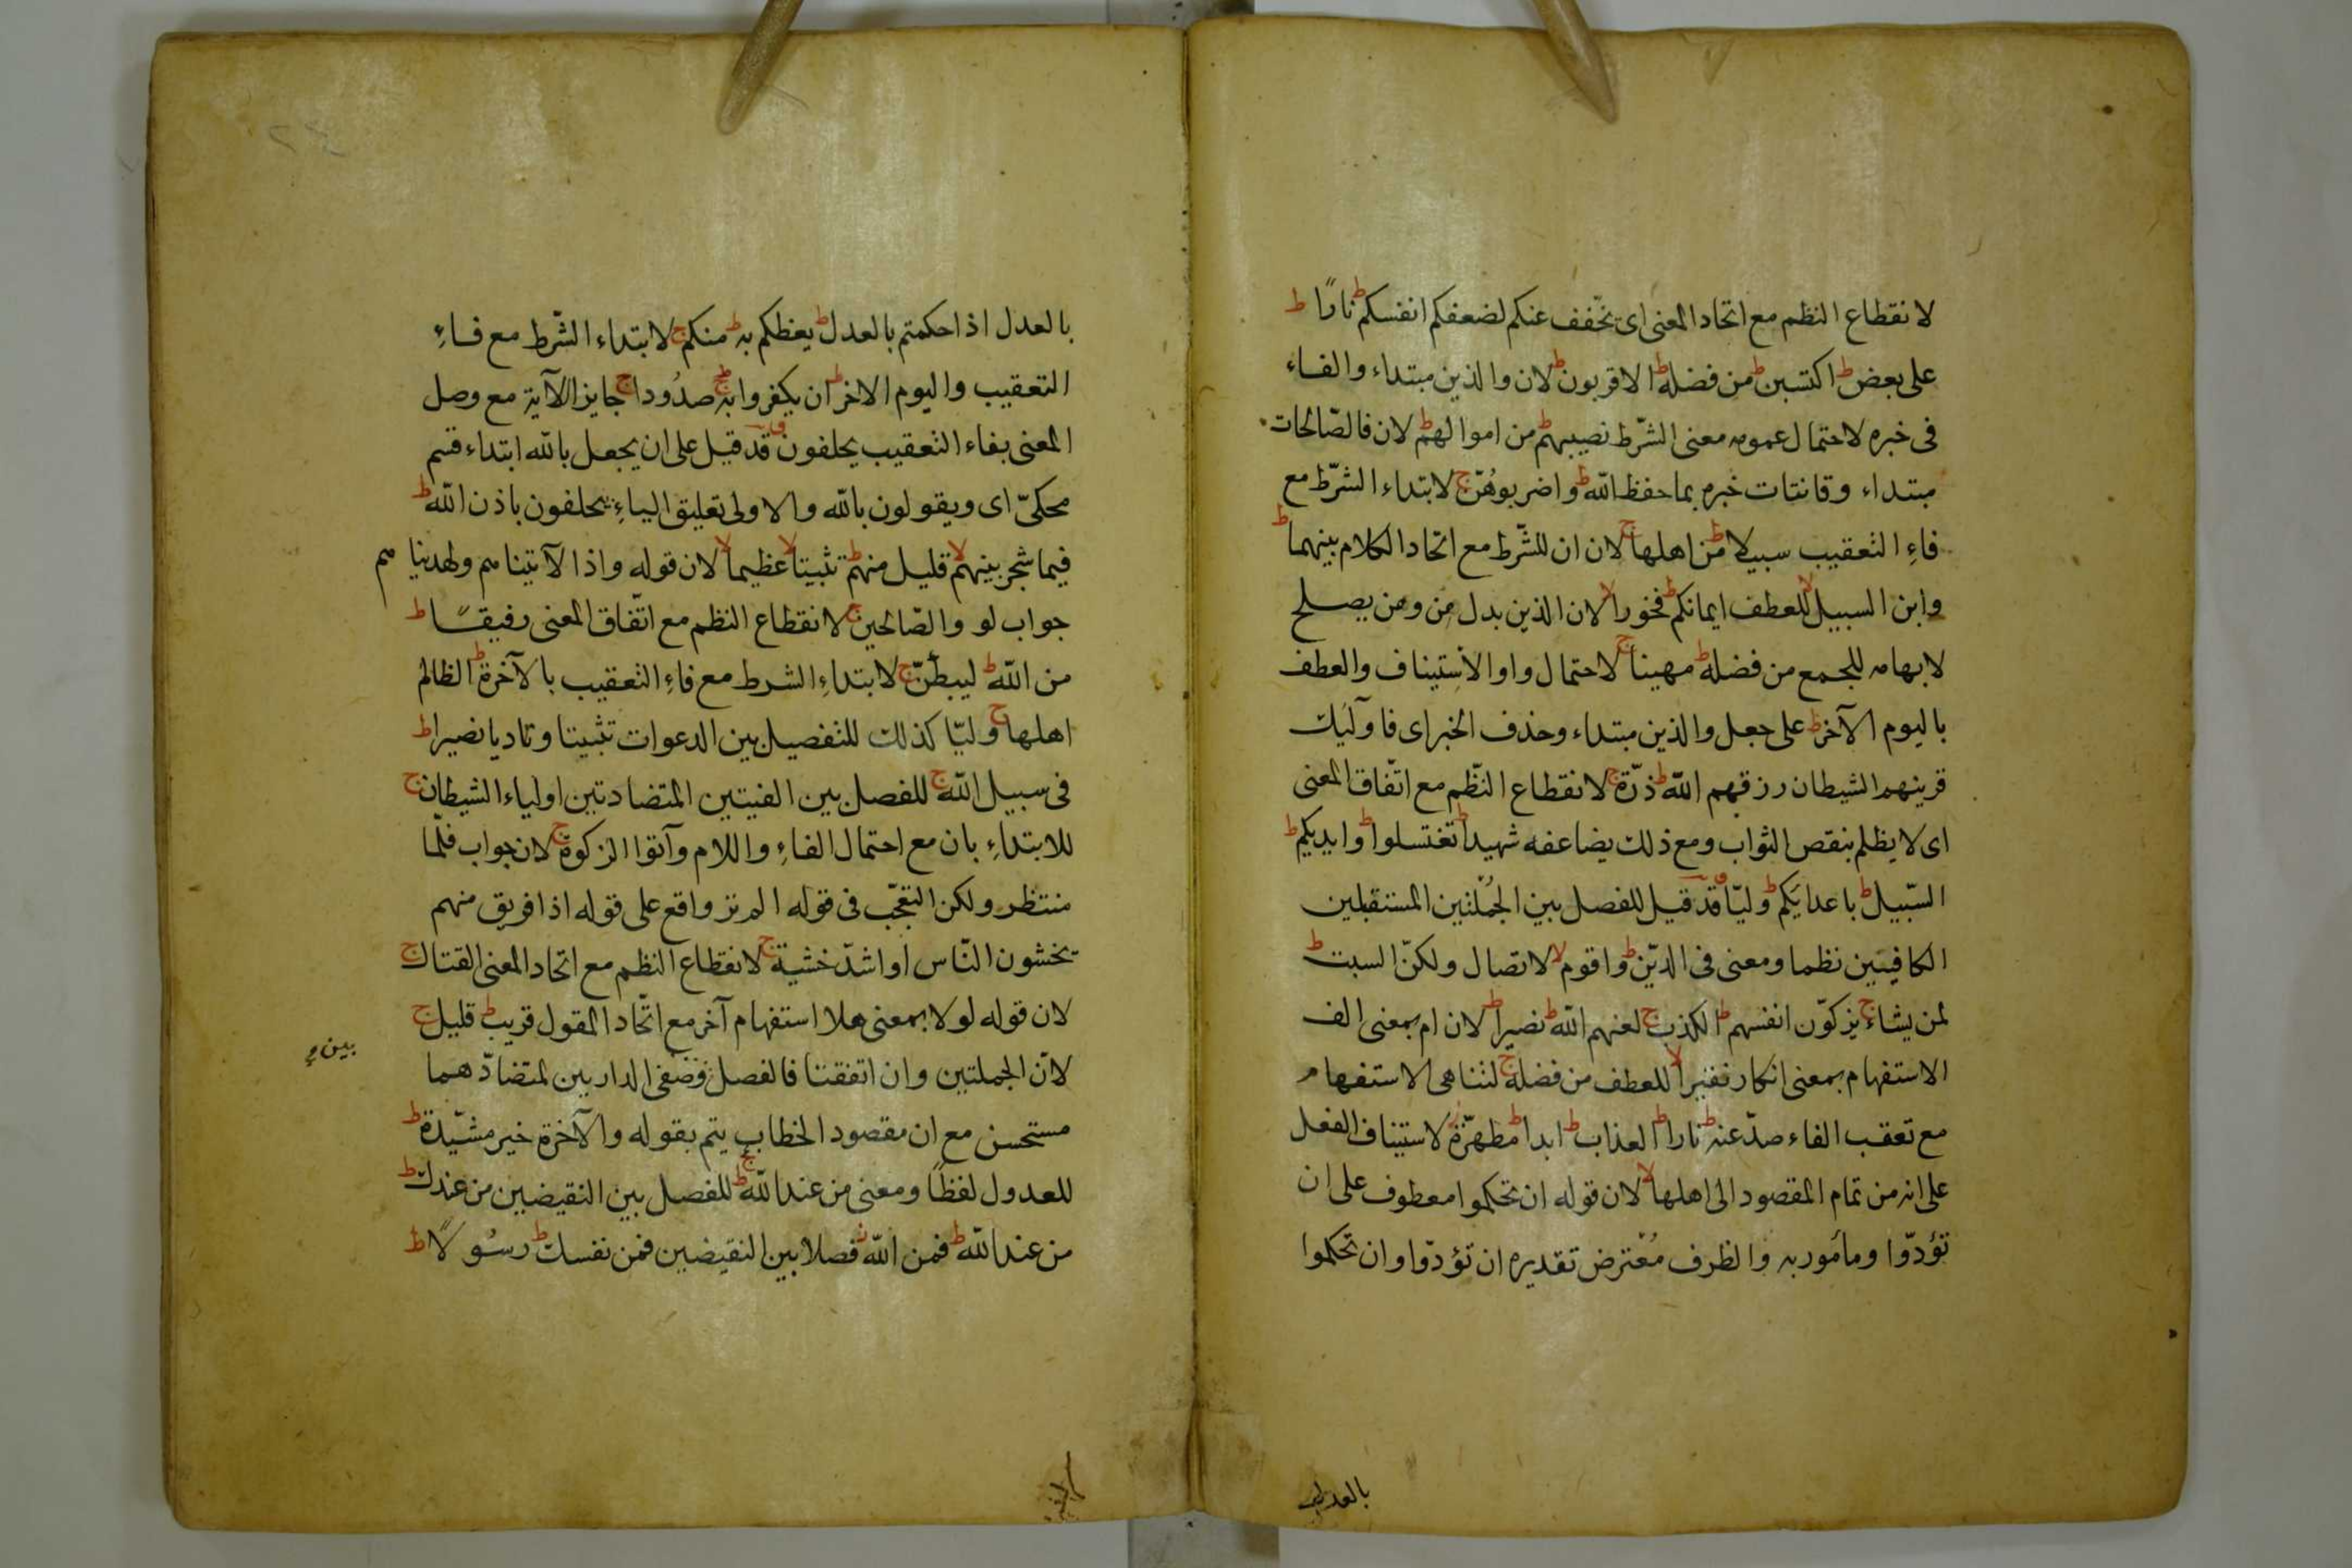 لانقطاع النظم مع اتحاد المعنى اى يخفف عنكم لضعفكم انفسكم ط نارًا ط
على بعض ط اكتسبن ط من فضله ط الاقربون ط لان والذين مبتداء والفاء
فى خبره لاحتمال عمومه معنى الشّرط نصيبهم ط من اموالهم ط لان فالصّالحات
مبتداء وقانتات خبره بما حفظ الله ط واضربوهُنّ ج لابتداء الشرّط مع
فاءِ التعقيب سبيلا ط من اهلها ج لان ان للشّرط مع اتحاد الكلام بينهما ط
وابن السبيل لا للعطف ايمانكم ط فخورا لا لان الذين بدل من ومن يصلح
لابهامه للجمع من فضله ط مهينا ج لاحتمال واو الاستيناف والعطف
باليوم الآخر ط على جعل والذين مبتداء وحذف الخبر اى فاولئك
قرينهم الشيطان رزقهم الله ط ذرّة ج لانقطاع النّظم مع اتّفاق المعنى
اى لا يظلم بنقص الثواب ومع ذلك يضاعفه شهيدا ط تغتسلوا ط وايديكم ط
السّبيل ط باعدايكم ط وليّا قد قيل للفصل بين الجُملتين المستقبلين
الكافيتين نظما ومعنى فى الدّين ط واقوم لا لاتصال ولكنّ السبت ط
لمن يشاء ج يزكوّن انفسهم ط الكذب ج لعنهم الله ط نصيرا ط لان ام بمعنى الف
الاستفهام بمعنى انكار نقيرا لا للعطف من فضله ج لتناهى الاستفهام
مع تعقب الفاء صدّ عنه ط نارا ط العذاب ط ابدا ط مطهرّة ز لاستيناف الفعل
على انه من تمام المقصود الى اهلها لا لان قوله ان تحكموا معطوف على ان
تؤدّوا ومأمور به والظرف مُعْترض تقديره ان تؤدّوا وان تحكموا
بالعدل
بالعدل اذا حكمتم بالعدل ط يعظكم به ط منكم ج لابتداء الشّرط مع فاءِ
التعقيب واليوم الاخر ط ان يكفروا به ط صدُودا ج جايز الآية مع وصل
المعنى بفاء التعقيب يحلفون قد قيل على ان يجعل بالله ابتداء قسم
محكىّ اى ويقولون بالله والاولى تعليق الباءِ بيحلفون باذن الله ط
فيما شجر بينهم لا قليل منهم ط تثبيتا لا عظيما لا لان قوله واذا لآتينا هم ولهدينا هم
جواب لو والصّالحين ج لانقطاع النظم مع اتّفاق المعنى رفيقًا ط
من الله ط ليبطئنّ ج لابتداءِ الشرط مع فاءِ التعقيب بالآخرة ط الظالم
اهلها ج وليّا كذلك للتفصيل بين الدعوات تثبيتا وتاديا نصيرا ط
فى سبيل الله ج للفصل بين الفيتين المتضادتين اولياء الشيطان ج
للابتداءِ بان مع احتمال الفاءِ واللام وآتوا الزكوة ج لان جواب فلّما
منتظر ولكن التعجّب فى قوله الم تر واقع على قوله اذا فريق منهم
يخشون النّاس او اشدّ خشية ج لانقطاع النظم مع اتحاد المعنى القتال ج
لان قوله لولا بمعنى هلا استفهام آخر مع اتّحاد المقول قريب ط قليل ج
لانّ الجملتين وان اتفقتا فالفصل وصفى الدارين لتضادّهما
بين
مستحسن مع ان مقصود الخطاب يتم بقوله والآخرة خير مشيّدة ط
للعدول لفظًا ومعنى من عند الله ج للفصل بين النقيضين من عندك ط
من عند الله ط فمن الله ز فصلا بين النقيضين فمن نفسك ط رسُولًا ط